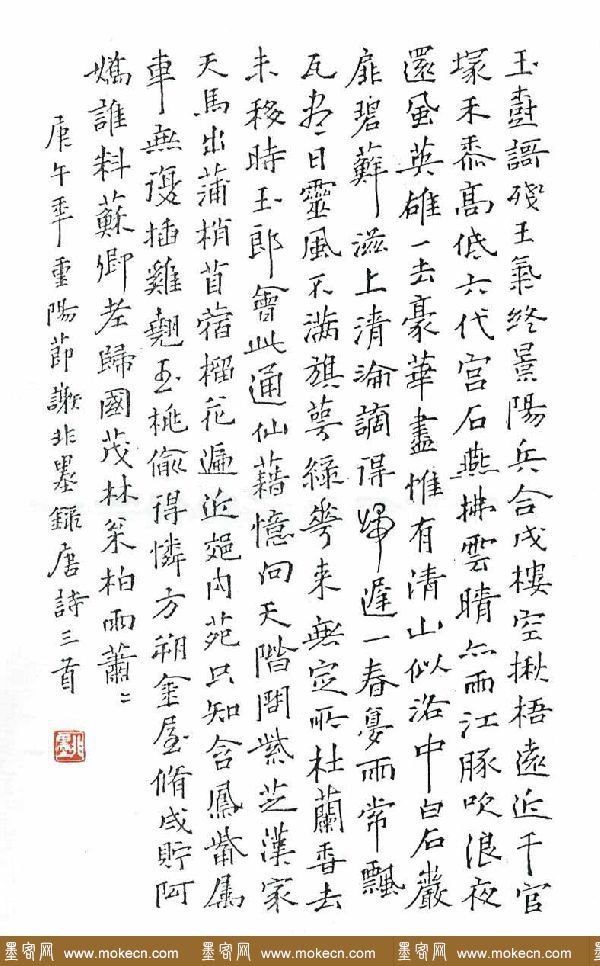 玉樹謌殘王氣終景陽兵合戍樓空楸梧遠近千官
塚禾黍高低六代宫石燕拂雲晴亦雨江豚吹浪夜
還風英雄一去豪華盡惟有清山似洛中白石巖
扉碧蘚滋上清淪謫得歸遲一春夢雨常飄
瓦盡日靈風不满旗萼绿華来無定所杜蘭香去
未移時玉郎會此通仙藉憶向天階問紫芝漢家
天馬出蒲梢苜蓿榴花遍近郊内苑只知含鳳觜属
車無復插雞翹玉桃偷得憐方朔金屋脩成貯阿
嬌誰料蘇卿老歸國茂林松柏雨蕭〻
庚午年重陽節謝非墨録唐詩三首
非墨
墨客网 www.mokecn.com 墨客网 www.mokecn.com 墨客网 www.mokecn.com